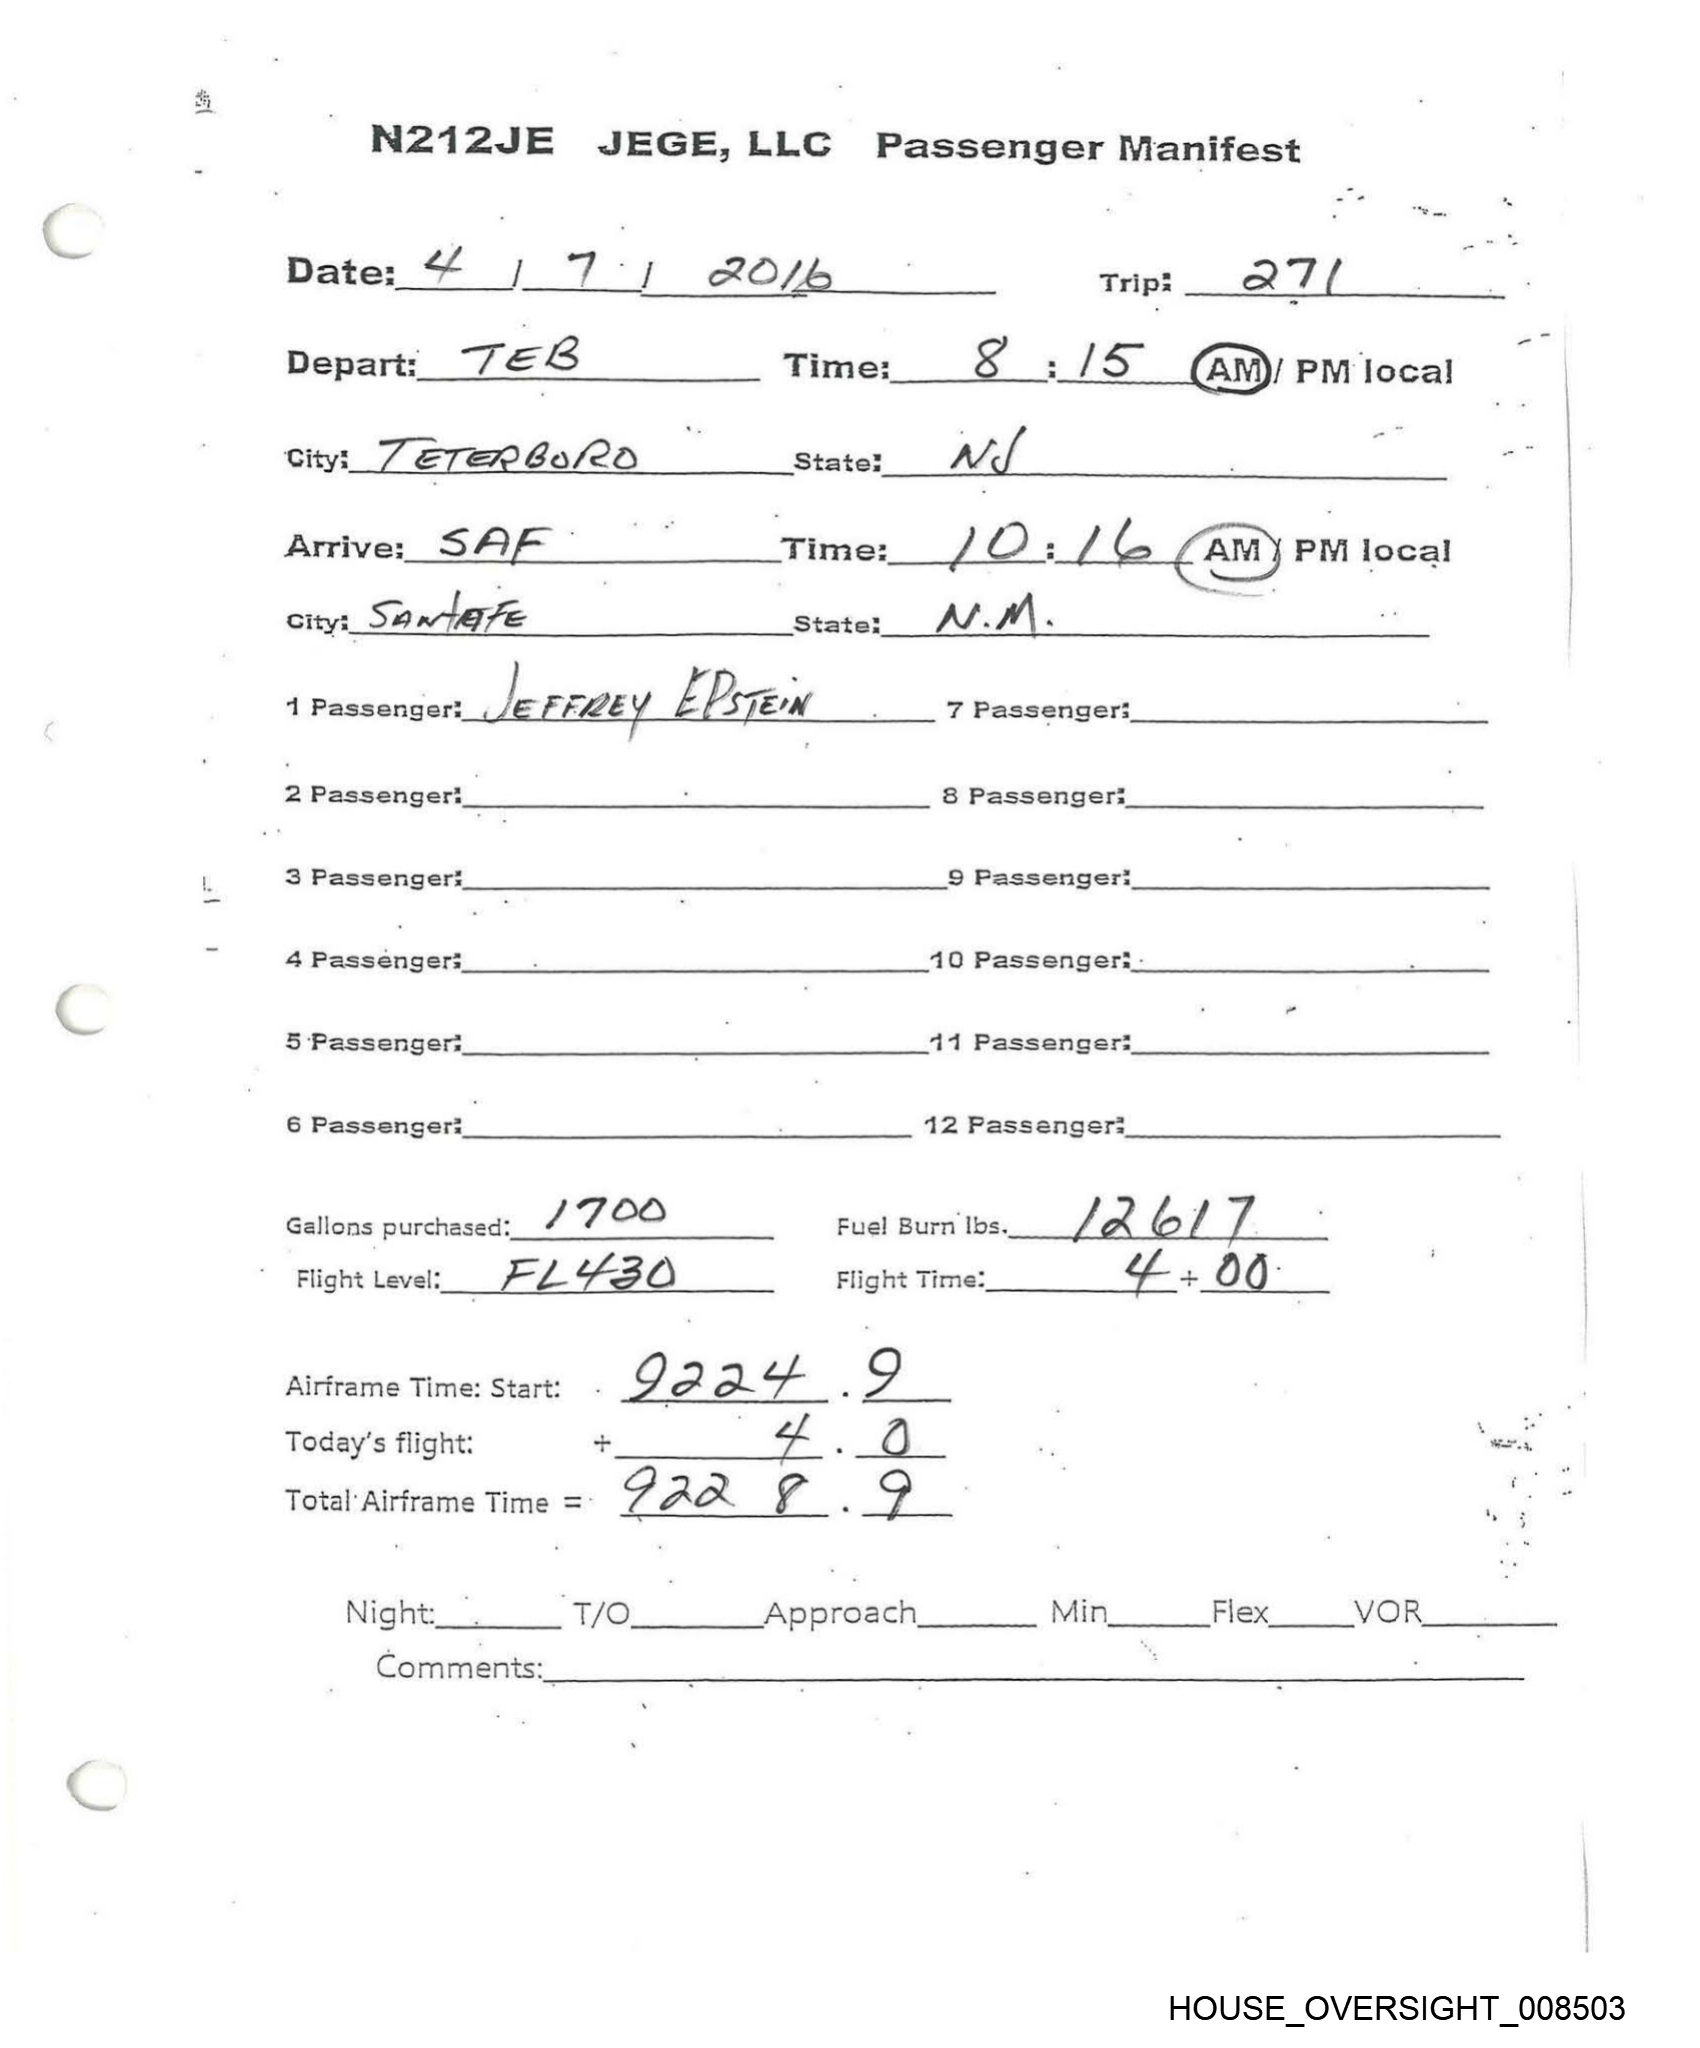 N212JE JEGE, LLC Passenger Manifest
Date: 4 / 7 / 2016 Trip: 271
Depart: TEB Time: 8 : 15 AM / PM local
City: TETERBORO State: NJ
Arrive: SAF Time: 10 : 16 AM / PM local
City: SANTAFE State: N.M.
1 Passenger: JEFFREY EPSTEIN 7 Passenger:
2 Passenger: 8 Passenger:
3 Passenger: 9 Passenger:
4 Passenger: 10 Passenger:
5 Passenger: 11 Passenger:
6 Passenger: 12 Passenger:
Gallons purchased: 1700 Fuel Burn lbs. 12617
Flight Level: FL430 Flight Time: 4 + 00
Airframe Time: Start: 9224 . 9
Today's flight: + 4 . 0
Total Airframe Time = 9228 . 9
Night: T/O Approach Min Flex VOR
Comments:
HOUSE_OVERSIGHT_008503